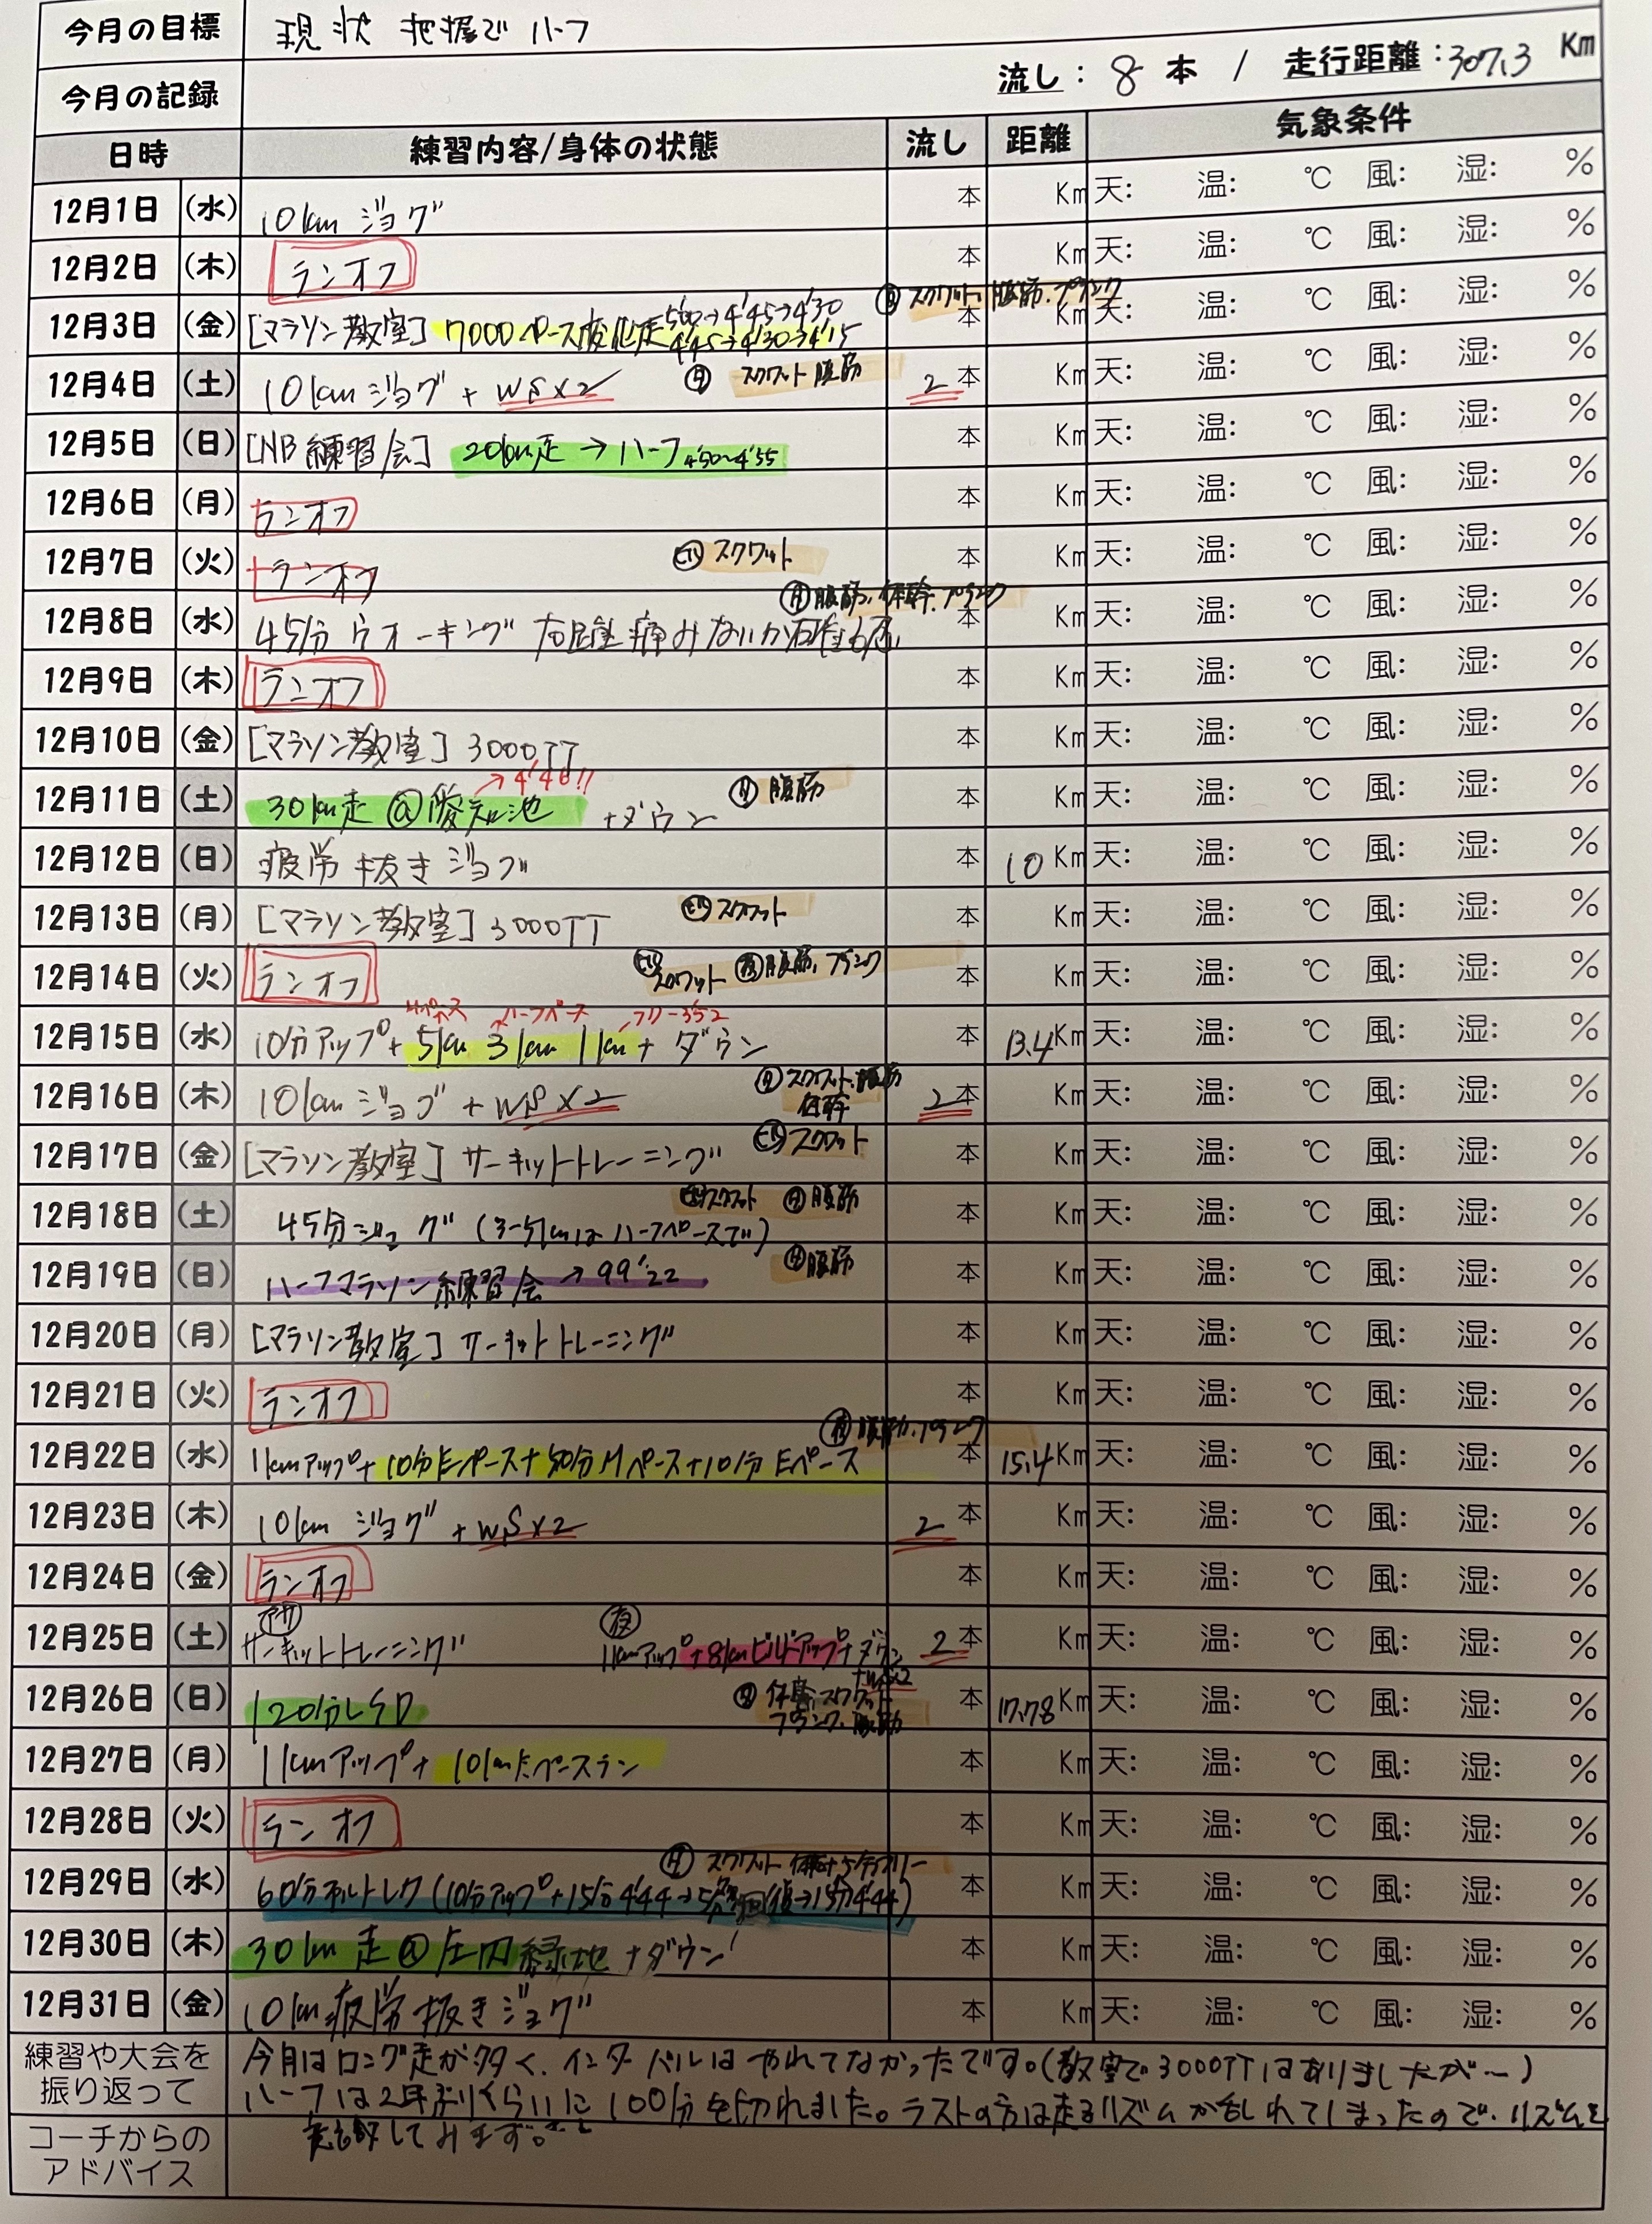 今月の目標 現状 把握で ハーフ
今月の記録 流し: 8 本 / 走行距離: 307.3 Km
日時 練習内容/身体の状態 流し 距離 気象条件
12月1日 (水) 10km ジョグ 本 Km 天: 温: ℃ 風: 湿: %
12月2日 (木) ランオフ 本 Km 天: 温: ℃ 風: 湿: %
スクワット 腹筋・プランク
5'00→4'45→4'30
12月3日 (金) [マラソン教室] 7000ペース変化走 4'45→4'30→4'15 本 Km 天: 温: ℃ 風: 湿: %
12月4日 (土) 10kmジョグ + WS×2 スクワット 腹筋 2 本 Km 天: 温: ℃ 風: 湿: %
12月5日 (日) [NB 練習会] 20km走 → ハーフ 4'50~4'55 本 Km 天: 温: ℃ 風: 湿: %
12月6日 (月) ランオフ 本 Km 天: 温: ℃ 風: 湿: %
12月7日 (火) ランオフ ヒル スクワット 本 Km 天: 温: ℃ 風: 湿: %
腹筋、体幹、プランク
12月8日 (水) 45分 ウオーキング 痛みないが 本 Km 天: 温: ℃ 風: 湿: %
12月9日 (木) ランオフ 本 Km 天: 温: ℃ 風: 湿: %
12月10日 (金) [マラソン教室] 3000TT 本 Km 天: 温: ℃ 風: 湿: %
→4'46!!
12月11日 (土) 30km走 @愛知池 +ダウン 腹筋 本 Km 天: 温: ℃ 風: 湿: %
12月12日 (日) 疲労抜きジョグ 本 10 Km 天: 温: ℃ 風: 湿: %
12月13日 (月) [マラソン教室] 3000TT ヒル スクワット 本 Km 天: 温: ℃ 風: 湿: %
12月14日 (火) ランオフ ヒル スクワット 夜 腹筋、プランク 本 Km 天: 温: ℃ 風: 湿: %
ハーフペース フリー3'52
12月15日 (水) 10分アップ+ 5km 3km 1km + ダウン 本 13.4 Km 天: 温: ℃ 風: 湿: %
12月16日 (木) 10kmジョグ + WS×2 スクワット、腹筋 体幹 2 本 Km 天: 温: ℃ 風: 湿: %
12月17日 (金) [マラソン教室] サーキットトレーニング ヒル スクワット 本 Km 天: 温: ℃ 風: 湿: %
12月18日 (土) 45分ジョグ (3~5kmはハーフペースで) スクワット 腹筋 本 Km 天: 温: ℃ 風: 湿: %
12月19日 (日) ハーフマラソン練習会 → 99'22 腹筋 本 Km 天: 温: ℃ 風: 湿: %
12月20日 (月) [マラソン教室] サーキットトレーニング 本 Km 天: 温: ℃ 風: 湿: %
12月21日 (火) ランオフ 本 Km 天: 温: ℃ 風: 湿: %
夜 腹筋、プランク
12月22日 (水) 1kmアップ+10分Eペース+50分Mペース+10分Eペース 本 15.4 Km 天: 温: ℃ 風: 湿: %
12月23日 (木) 10km ジョグ + WS×2 2 本 Km 天: 温: ℃ 風: 湿: %
12月24日 (金) ランオフ 本 Km 天: 温: ℃ 風: 湿: %
アサ 夜
12月25日 (土) サーキットトレーニング 1kmアップ+8kmビルドアップ+ダウン 2 本 Km 天: 温: ℃ 風: 湿: %
+WS×2
12月26日 (日) 120分LSD 体幹、スクワット プランク、腹筋 本 17.78 Km 天: 温: ℃ 風: 湿: %
12月27日 (月) 1kmアップ+ 10kmEペースラン 本 Km 天: 温: ℃ 風: 湿: %
12月28日 (火) ランオフ 本 Km 天: 温: ℃ 風: 湿: %
スクワット +5分フリー
12月29日 (水) 60分 (10分アップ+15分4'44→5分→15分4'44) 本 Km 天: 温: ℃ 風: 湿: %
12月30日 (木) 30km走@庄内緑地 +ダウン 本 Km 天: 温: ℃ 風: 湿: %
12月31日 (金) 10km疲労抜きジョグ 本 Km 天: 温: ℃ 風: 湿: %
練習や大会を振り返って 今月はロング走が多く、インターバルはやれてなかったです。(教室で3000TTはありましたが…)
ハーフは2年ぶりくらいに100分を切れました。ラストの方は走るリズムが乱れてしまったので、リズムを
意識してみます。
コーチからのアドバイス